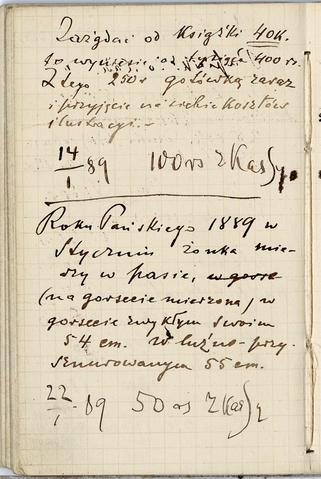 Zażądać od Książki 40 k.
to wyniesie od tysiąca 400 rs.
Z tego 250 r gotówką zaraz
i przyjęcie na siebie kosztów
ilustracyi.-
14/1 89 100 rs z Kassy
Roku Pańskiego 1889 w
Styczniu żonka mie-
rzy w pasie, w gorse
(na gorsecie mierzona) w
gorsecie zwykłym swoim
54 cm. w luźno-przy-
sznurowanym 55 cm.
22/1 89 50 rs z Kassy